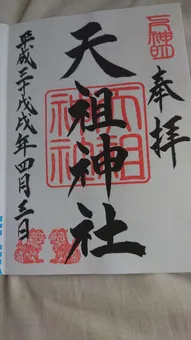 奉拝
天祖神社
平成三十戊戌年四月三日
天祖神社